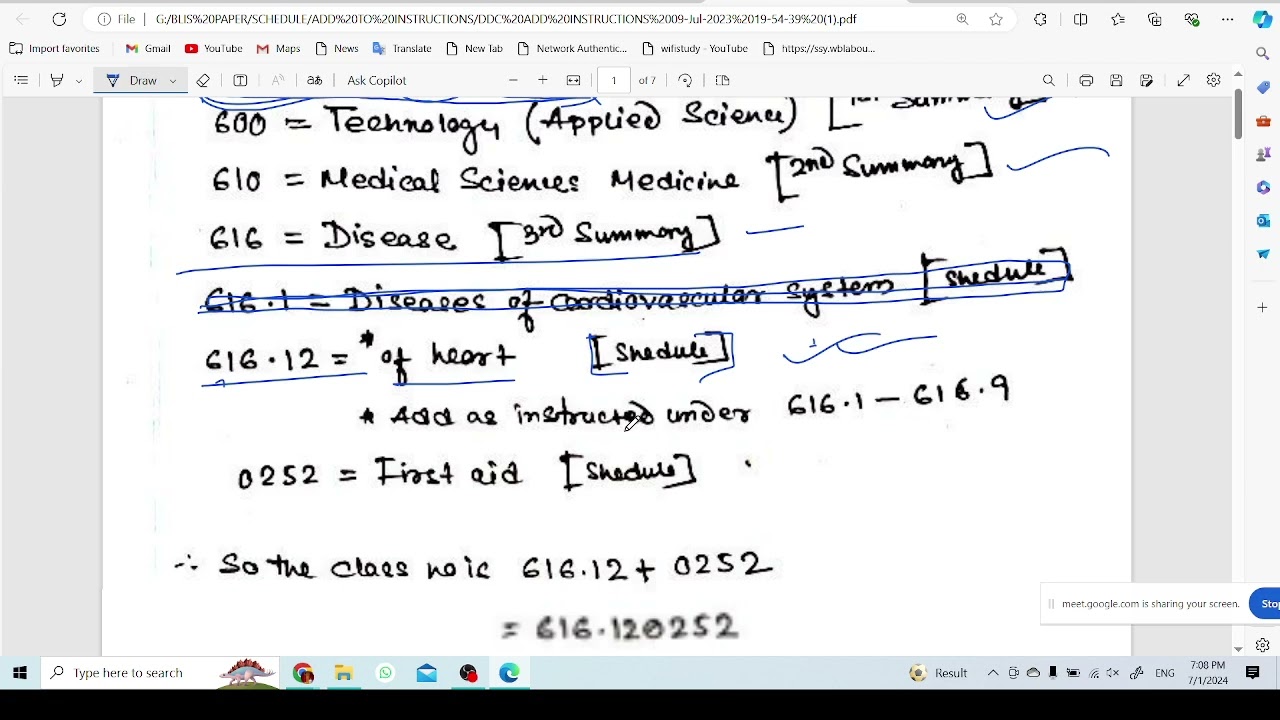 File G:/BLIS%20PAPER/SCHEDULE/ADD%20TO%20INSTRUCTIONS/DDC%20ADD%20INSTRUCTIONS%2009-Jul-2023%2019-54-39%20(1).pdf
Import favorites Gmail YouTube Maps News Translate New Tab Network Authentic... wifistudy - YouTube https://ssy.oblabou...
Draw Ask Copilot 1 of 7
600 = Technology (Applied Science) [1st Summary
610 = Medical Sciences Medicine [2nd Summary]
616 = Disease [3rd Summary]
616.1 = Diseases of cardiovascular system [Shedule]
616.12 = * of heart [Shedule]
* Add as instructed under 616.1 - 616.9
0252 = First aid [Shedule]
∴ So the class no is 616.12 + 0252
= 616.120252
meet.google.com is sharing your screen.
Type here to search Result ENG 7:00 PM
7/1/2024